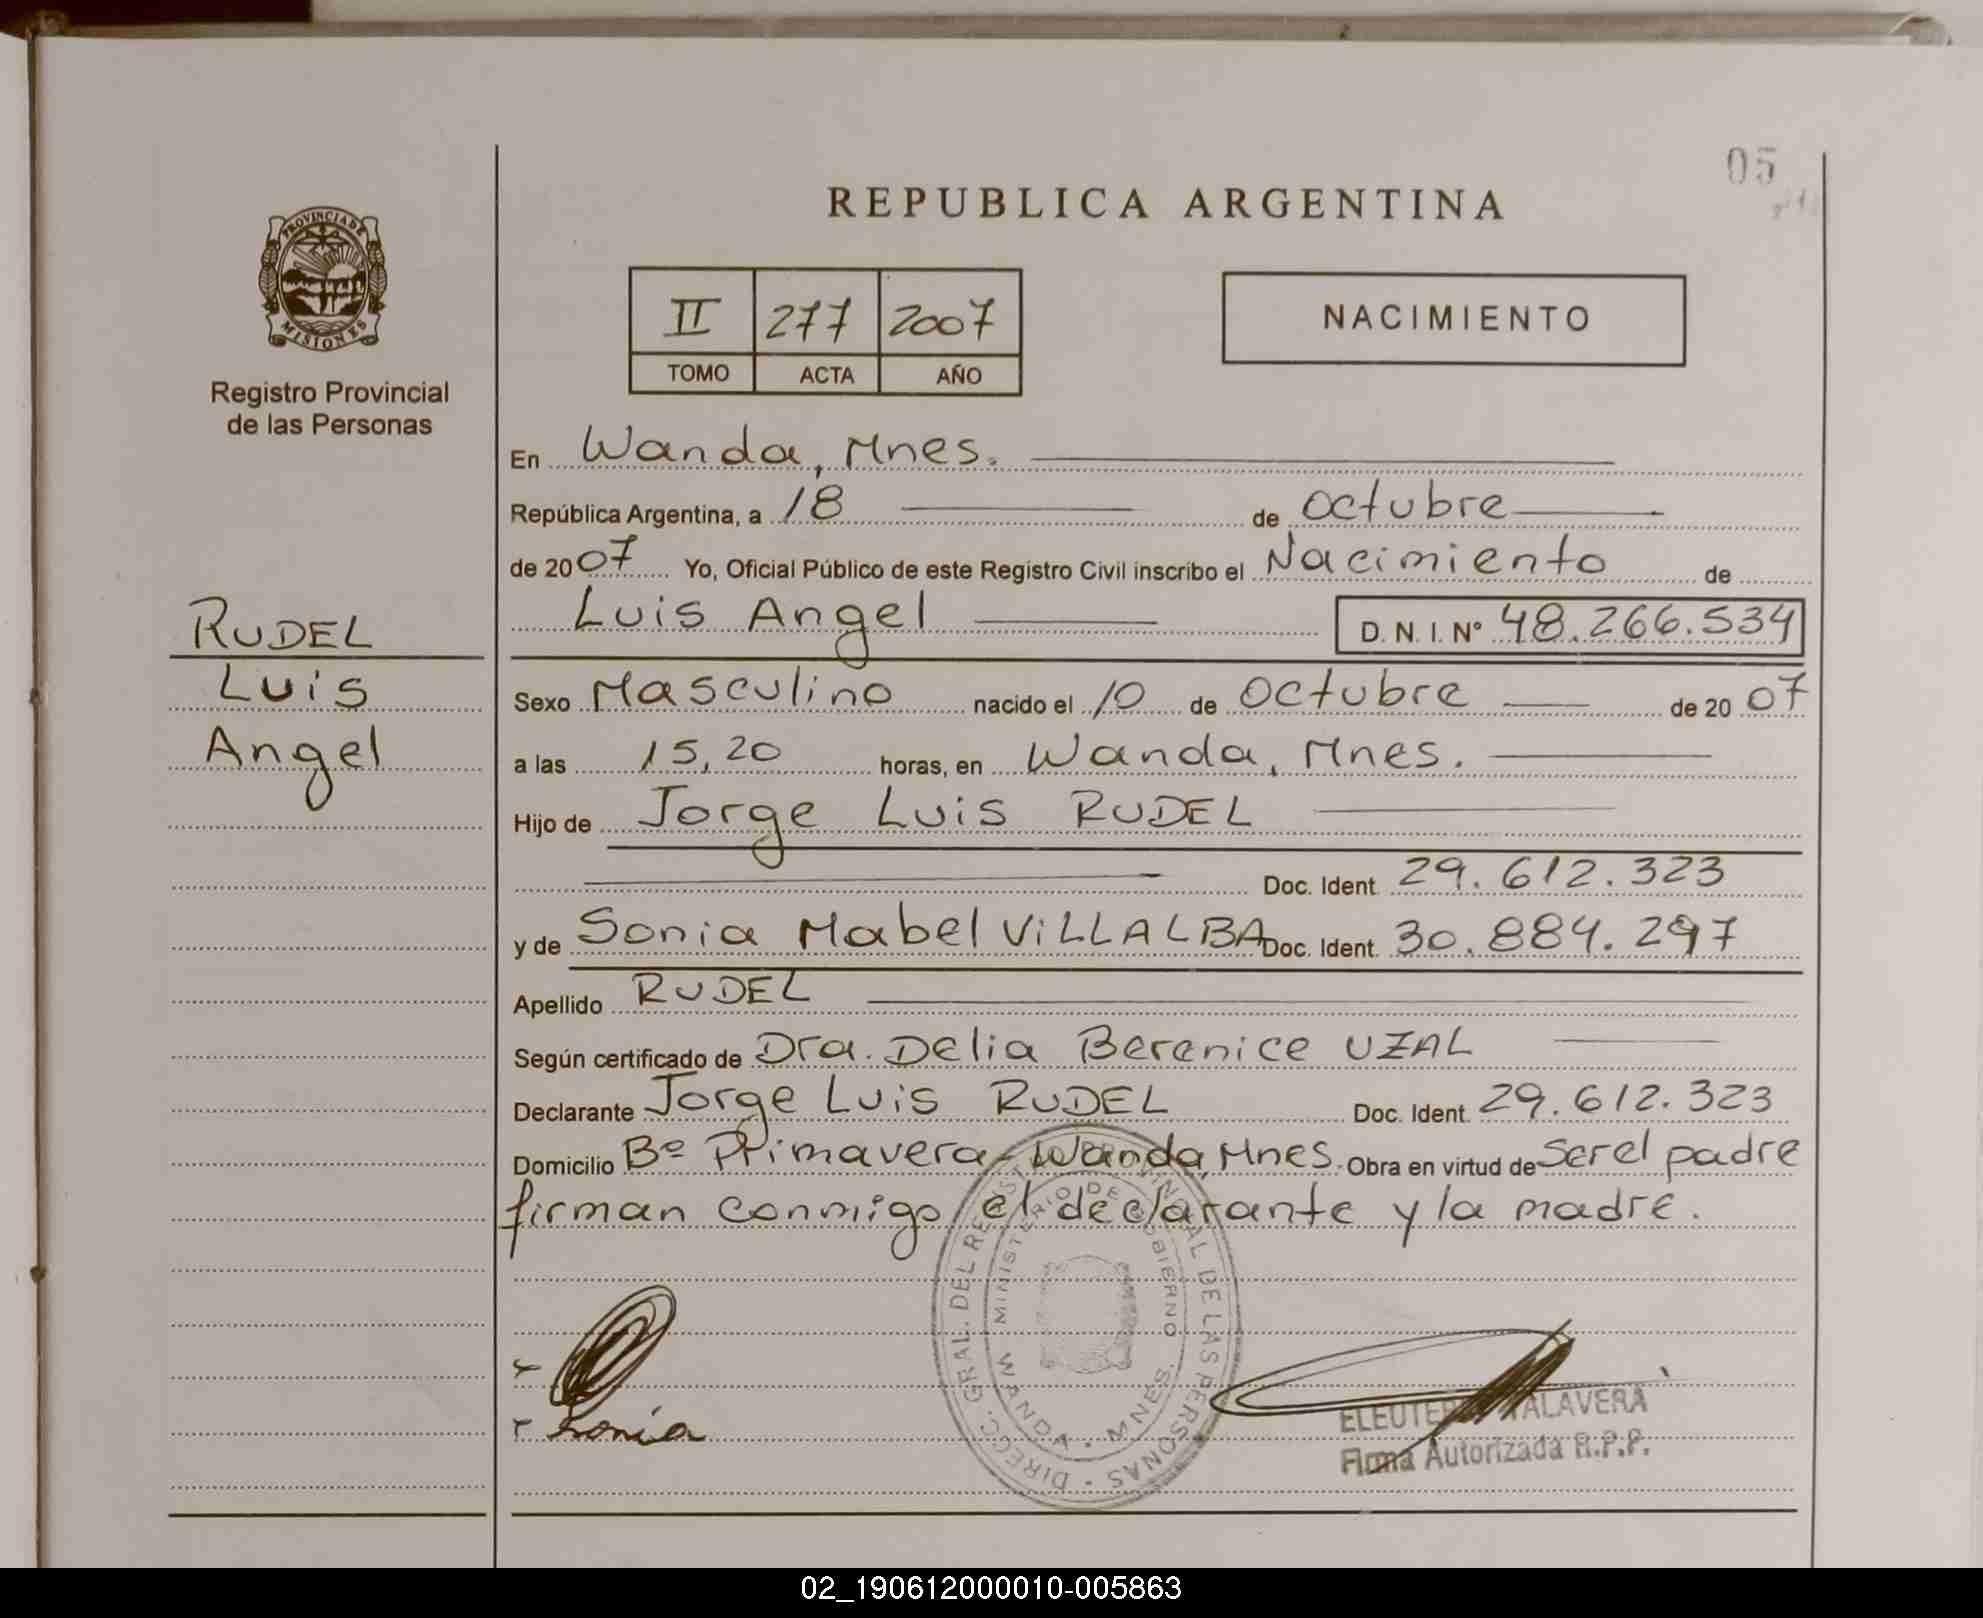 05
REPUBLICA ARGENTINA
PROVINCIA DE
MISIONES
Registro Provincial
de las Personas
II 277 2007
TOMO ACTA AÑO
NACIMIENTO
En Wanda, Mnes.
República Argentina, a 18 de octubre
de 2007 Yo, Oficial Público de este Registro Civil inscribo el Nacimiento de
Luis Angel D. N. I. Nº 48.266.534
RUDEL
Luis
Angel
Sexo Masculino nacido el 10 de Octubre de 2007
a las 15,20 horas, en Wanda, Mnes.
Hijo de Jorge Luis RUDEL
Doc. Ident. 29.612.323
y de Sonia Mabel ViLLALBA Doc. Ident. 30.884.297
Apellido RUDEL
Según certificado de Dra. Delia Berenice UZAL
Declarante Jorge Luis RUDEL Doc. Ident. 29.612.323
Domicilio Bº Primavera - Wanda, Mnes. Obra en virtud de ser el padre
firman conmigo el declarante y la madre.
DIRECC. GRAL. DEL REGISTRO PROVINCIAL DE LAS PERSONAS
MINISTERIO DE GOBIERNO
WANDA - MNES.
Sonia
ELEUTERIO TALAVERA
Firma Autorizada R.P.P.
02_190612000010-005863